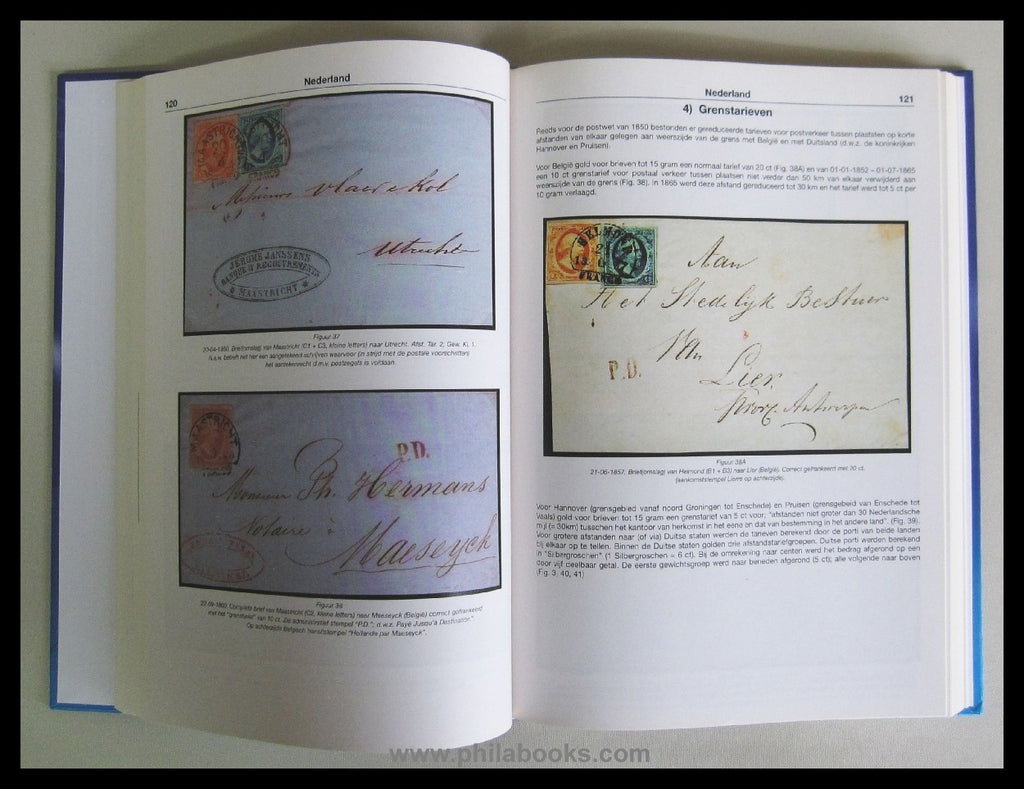 Nederland
120
MAASTRICHT
FRANCO
Monsieur
Utrecht
JEROME JANSSENS
BANQUE & RECOUVREMENTS
MAASTRICHT
Figuur 37
Briefomslag van Maastricht (C1 + C3, kleine letters) naar Utrecht. Afst. Tar. 2, Gew. Kl. 1.
betreft het hier een aangetekend schrijven waarvoor (in strijd met de postale voorschriften
het aantekenrecht d.m.v. postzegels is voldaan.
MAASTRICHT
P.D.
Monsieur Ph. Hermans
Notaire à
Maeseyck
Figuur 38
Complete brief van Maastricht (C2, kleine letters) naar Maeseyck (België) correct gefrankeerd
met het "grenstarief" van 10 ct. Zie administratief stempel "P.D."; d.w.z. Payé Jusqu'à Destination."
Op achterzijde Belgisch transitstempel "Hollande par Maeseyck".
Nederland
121
4) Grenstarieven
Reeds voor de postwet van 1850 bestonden er gereduceerde tarieven voor postverkeer tussen plaatsten op korte
afstanden van elkaar gelegen aan weerszijde van de grens met België en met Duitsland (d.w.z. de koninkrijken
Hannover en Pruisen).
Voor België gold voor brieven tot 15 gram een normaal tarief van 20 ct (Fig. 38A) en van 01-01-1852 – 01-07-1865
een 10 ct grenstarief voor postaal verkeer tussen plaatsen niet verder dan 50 km van elkaar verwijderd aan
weerszijde van de grens (Fig. 38). In 1865 werd deze afstand gereduceerd tot 30 km en het tarief werd tot 5 ct per
10 gram verlaagd.
HELMOND
FRANCO
Aan
Het Stedelijk Bestuur
Van
P.D.
Lier
Prov. Antwerpen
Figuur 38A
21-06-1857. Briefomslag van Helmond (B1 + B3) naar Lier (België). Correct gefrankeerd met 20 ct.
(aankomststempel Lierre op achterzijde).
Voor Hannover (grensgebied vanaf noord Groningen tot Enschede) en Pruisen (grensgebied van Enschede tot
Vaals) gold voor brieven tot 15 gram een grenstarief van 5 ct voor; "afstanden niet groter dan 30 Nederlandsche
mijl (= 30km) tusschen het kantoor van herkomst in het eene en dat van bestemming in het andere land". (Fig. 39).
Voor grotere afstanden naar (of via) Duitse staten werden de tarieven berekend door de porti van beide landen
bij elkaar op te tellen. Binnen de Duitse staten golden drie afstandstariefgroepen. Duitse porti werden berekend
in "Silbergroschen" (1 Silbergroschen = 6 ct). Bij de omrekening naar centen werd het bedrag afgerond op een
door vijf deelbaar getal. De eerste gewichtsgroep werd naar beneden afgerond (5 ct); alle volgende naar boven
(Fig. 3, 40, 41)
www.philabooks.com